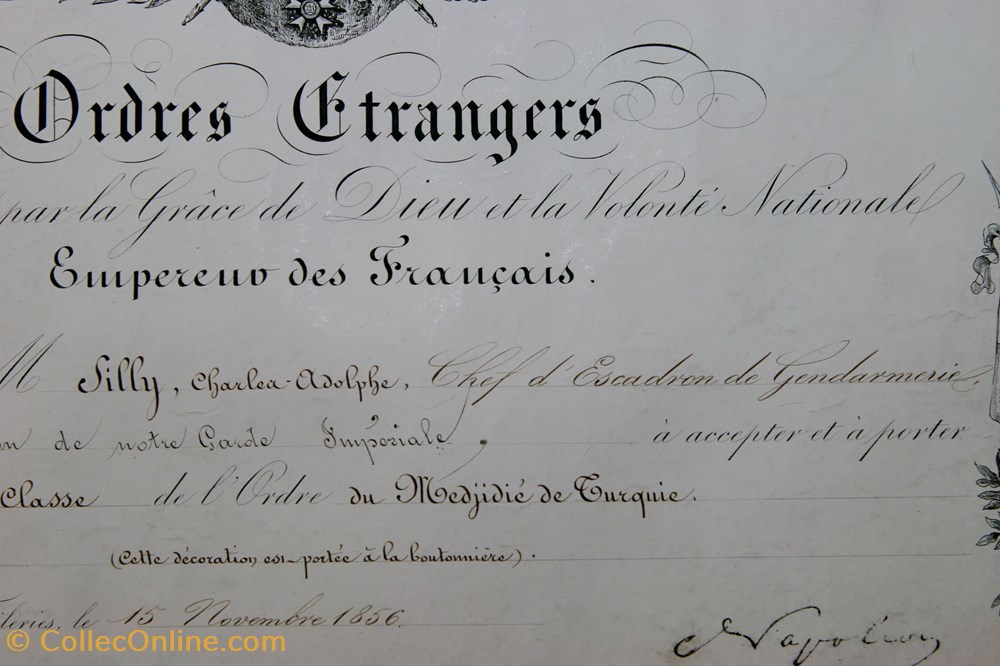 Ordres Etrangers
par la Grâce de Dieu et la Volonté Nationale
Empereur des Français.
M Silly, Charles-Adolphe, Chef d'Escadron de Gendarmerie,
de notre Garde Impériale, à accepter et à porter
Classe de l'Ordre du Medjidié de Turquie.
(Cette décoration est portée à la boutonnière).
le 15 Novembre 1856.
Napoléon
© CollecOnline.com